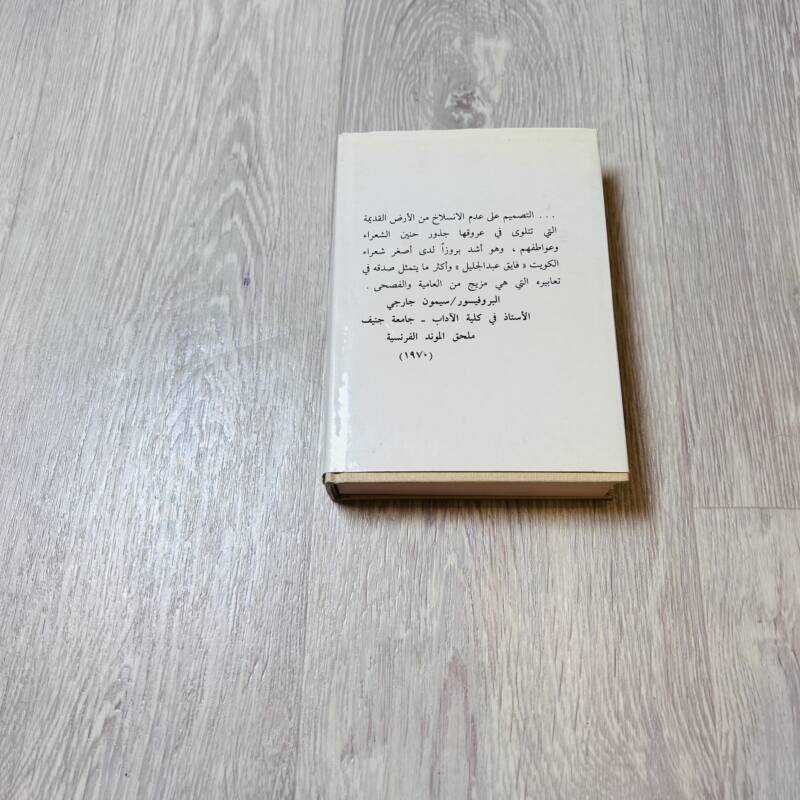 ... التصميم على عدم الانسلاخ من الأرض القديمة
التي تتلوى في عروقها جذور حنين الشعراء
وعواطفهم ، وهو أشد بروزاً لدى أصغر شعراء
الكويت « فايق عبدالجليل » وأكثر ما يتمثل صدقه في
تعابيره التي هي مزيج من العامية والفصحى .
البروفيسور/سيمون جارجي
الأستاذ في كلية الآداب - جامعة جنيف
ملحق الموند الفرنسية
(١٩٧٠)